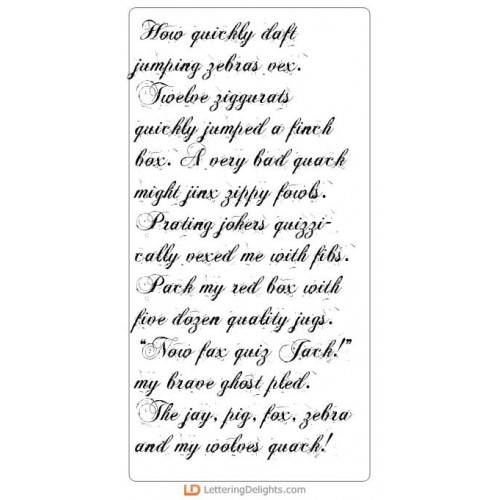 How quickly daft
jumping zebras vex.
Twelve ziggurats
quickly jumped a finch
box. A very bad quack
might jinx zippy fowls.
Prating jokers quizzi-
cally vexed me with fibs.
Pack my red box with
five dozen quality jugs.
“Now fax quiz Jack!”
my brave ghost pled.
The jay, pig, fox, zebra
and my wolves quack!
LD LetteringDelights.com